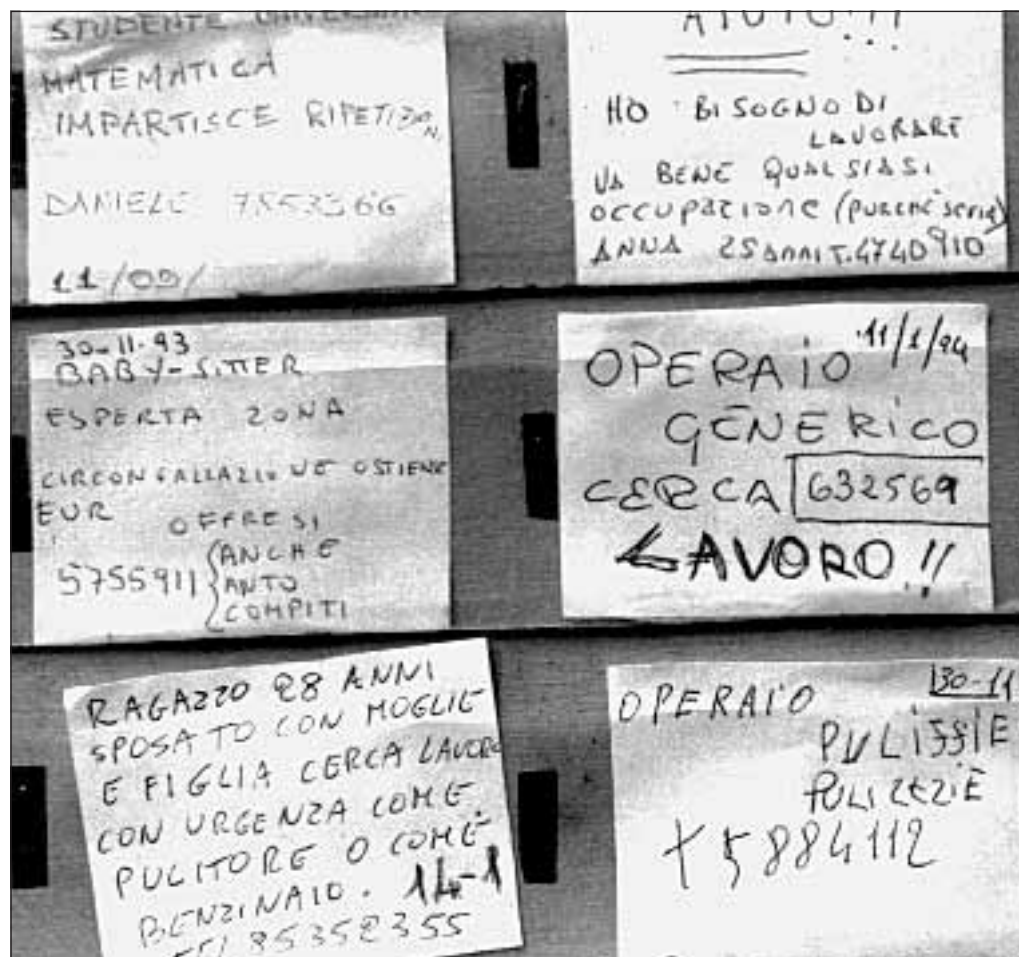 STUDENTE
MATEMATICA
IMPARTISCE RIPETIZON.
DANIELE 7553366
11/09/
AIUTO!!!
HO BISOGNO DI
LAVORARE
VA BENE QUALSIASI
OCCUPAZIONE (PURCHÉ SERIA)
ANNA 25 ANNI T.4740910
30-11-93
BABY-SITTER
ESPERTA ZONA
CIRCONVALLAZIONE OSTIENE
EUR OFFRESI
5755911 ANCHE
AIUTO
COMPITI
11/1/94
OPERAIO
GENERICO
CERCA 632569
LAVORO!!
RAGAZZO 28 ANNI
SPOSATO CON MOGLIE
E FIGLIA CERCA LAVORO
CON URGENZA COME
PULITORE O COME
BENZINAIO. 14-1
TEL 85352355
30-11
OPERAIO
PULISSIE
PULIZEZIE
5884112